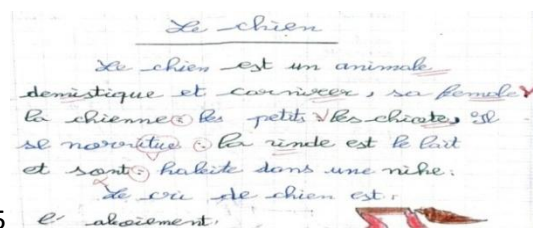 Le chien
Le chien est un animale
demistique et carniveer, sa femele
la chienne : les petits les chiots, il
se norritue : la vinde est le lait
et sont : habite dans une nihe.
Le cri de chien est :
5 e aboiement.